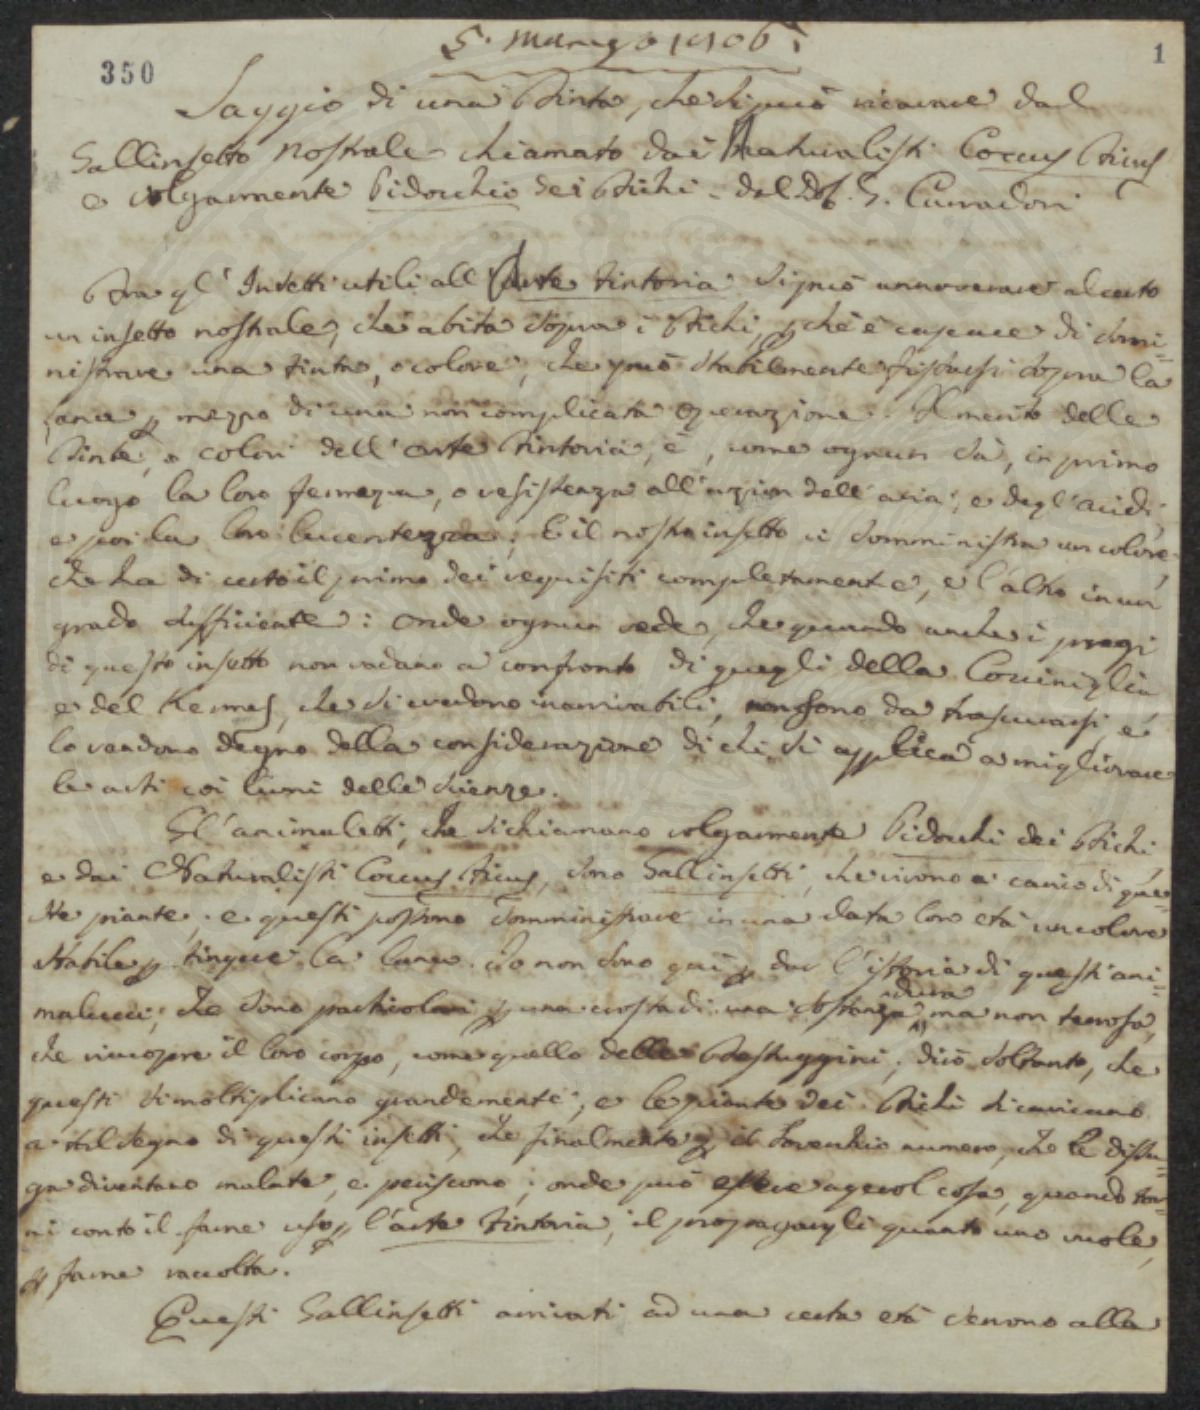 5. Marzo 1806
350
1
Saggio di una Tinta, che si può ricavare dal
Gallinsetto Nostrale chiamato dai Naturalisti Coccus Ficus
e volgarmente Pidocchio dei Fichi - del Dot. G. Carradori
Fra gl' Insetti utili all' Arte tintoria si può annoverare al certo
un insetto nostrale, che abita sopra i Fichi, p chè è capace di somi=
nistrare una tinta, o colore, che può stabilmente fissarsi sopra la
lana p mezzo di una non complicata operazione. Il merito delle
Tinte, o colori dell' arte Tintoria, è, come ognun sà, in primo
luogo la loro fermezza, o resistenza all' azion dell' aria, e degl' acidi,
e poi la loro lucentezza; E il nostro insetto ci somministra un colore
che ha di certo il primo dei requisiti completamente, e l' altro in un
grado sufficiente: onde ognun vede, che quando anche i pregi
di questo insetto non vadano a confronto di quegli della Cocciniglia
e del Kermes, che si credono inarrivabili, non sono da trascurarsi e
lo rendono degno della considerazione di chi si applica a migliorare
le arti coi lumi delle scienze.
Gl' animaletti, che si chiamano volgarmente Pidocchi dei Fichi
e dai Naturalisti Coccus Ficus, sono Gallinsetti, che vivono a carico di que=
ste piante, e questi possono somministrare in una data loro età un colore
stabile p tingere la lana. Io non sono qui p dar l' istoria di questi ani=
malucci, che sono particolari p una crosta di una sostanza dura ma non terrosa,
che ricuopre il loro corpo, come quello delle Testuggini; dirò soltanto, che
questi si moltiplicano grandemente, e le piante dei Fichi si caricano
a tal segno di questi insetti, che finalmente p il soverchio numero, che le disu=
ga diventano malate, e periscono; onde può essere agevol cosa, quando tor=
ni conto il farne uso p l' arte tintoria, il propagargli quanto uno vuole,
p farne raccolta.
Questi Gallinsetti arrivati ad una certa età servono alla